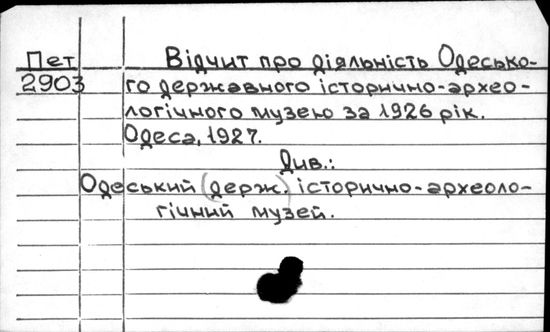 Пет Відчит про діяльність Одесько-
2903 го державного історично-архео-
логічного музею за 1926 рік.
Одеса, 1927.
Див.:
Одеський (держ.) історично-археоло-
гічний музей.